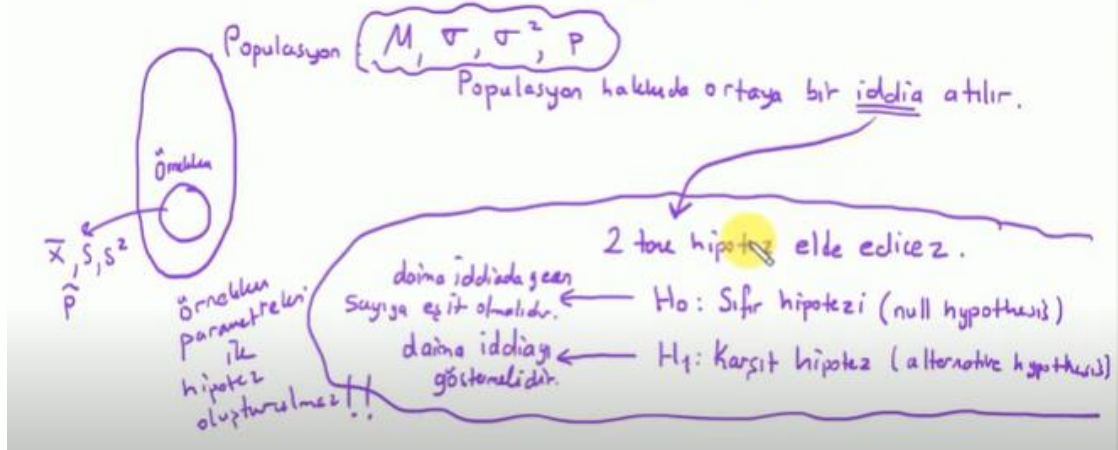 Populasyon M, σ, σ², P
Populasyon hakkında ortaya bir iddia atılır.
Örneklem
x̄, s, s²
p̂
Örneklem
parametreleri
ile
hipotez
oluşturulmaz!!
2 tane hipotez elde edicez.
daima iddiada geçen
sayıya eşit olmalıdır.
H₀: Sıfır hipotezi (null hypothesis)
daima iddiayı
göstermelidir.
H₁: Karşıt hipotez (alternative hypothesis)